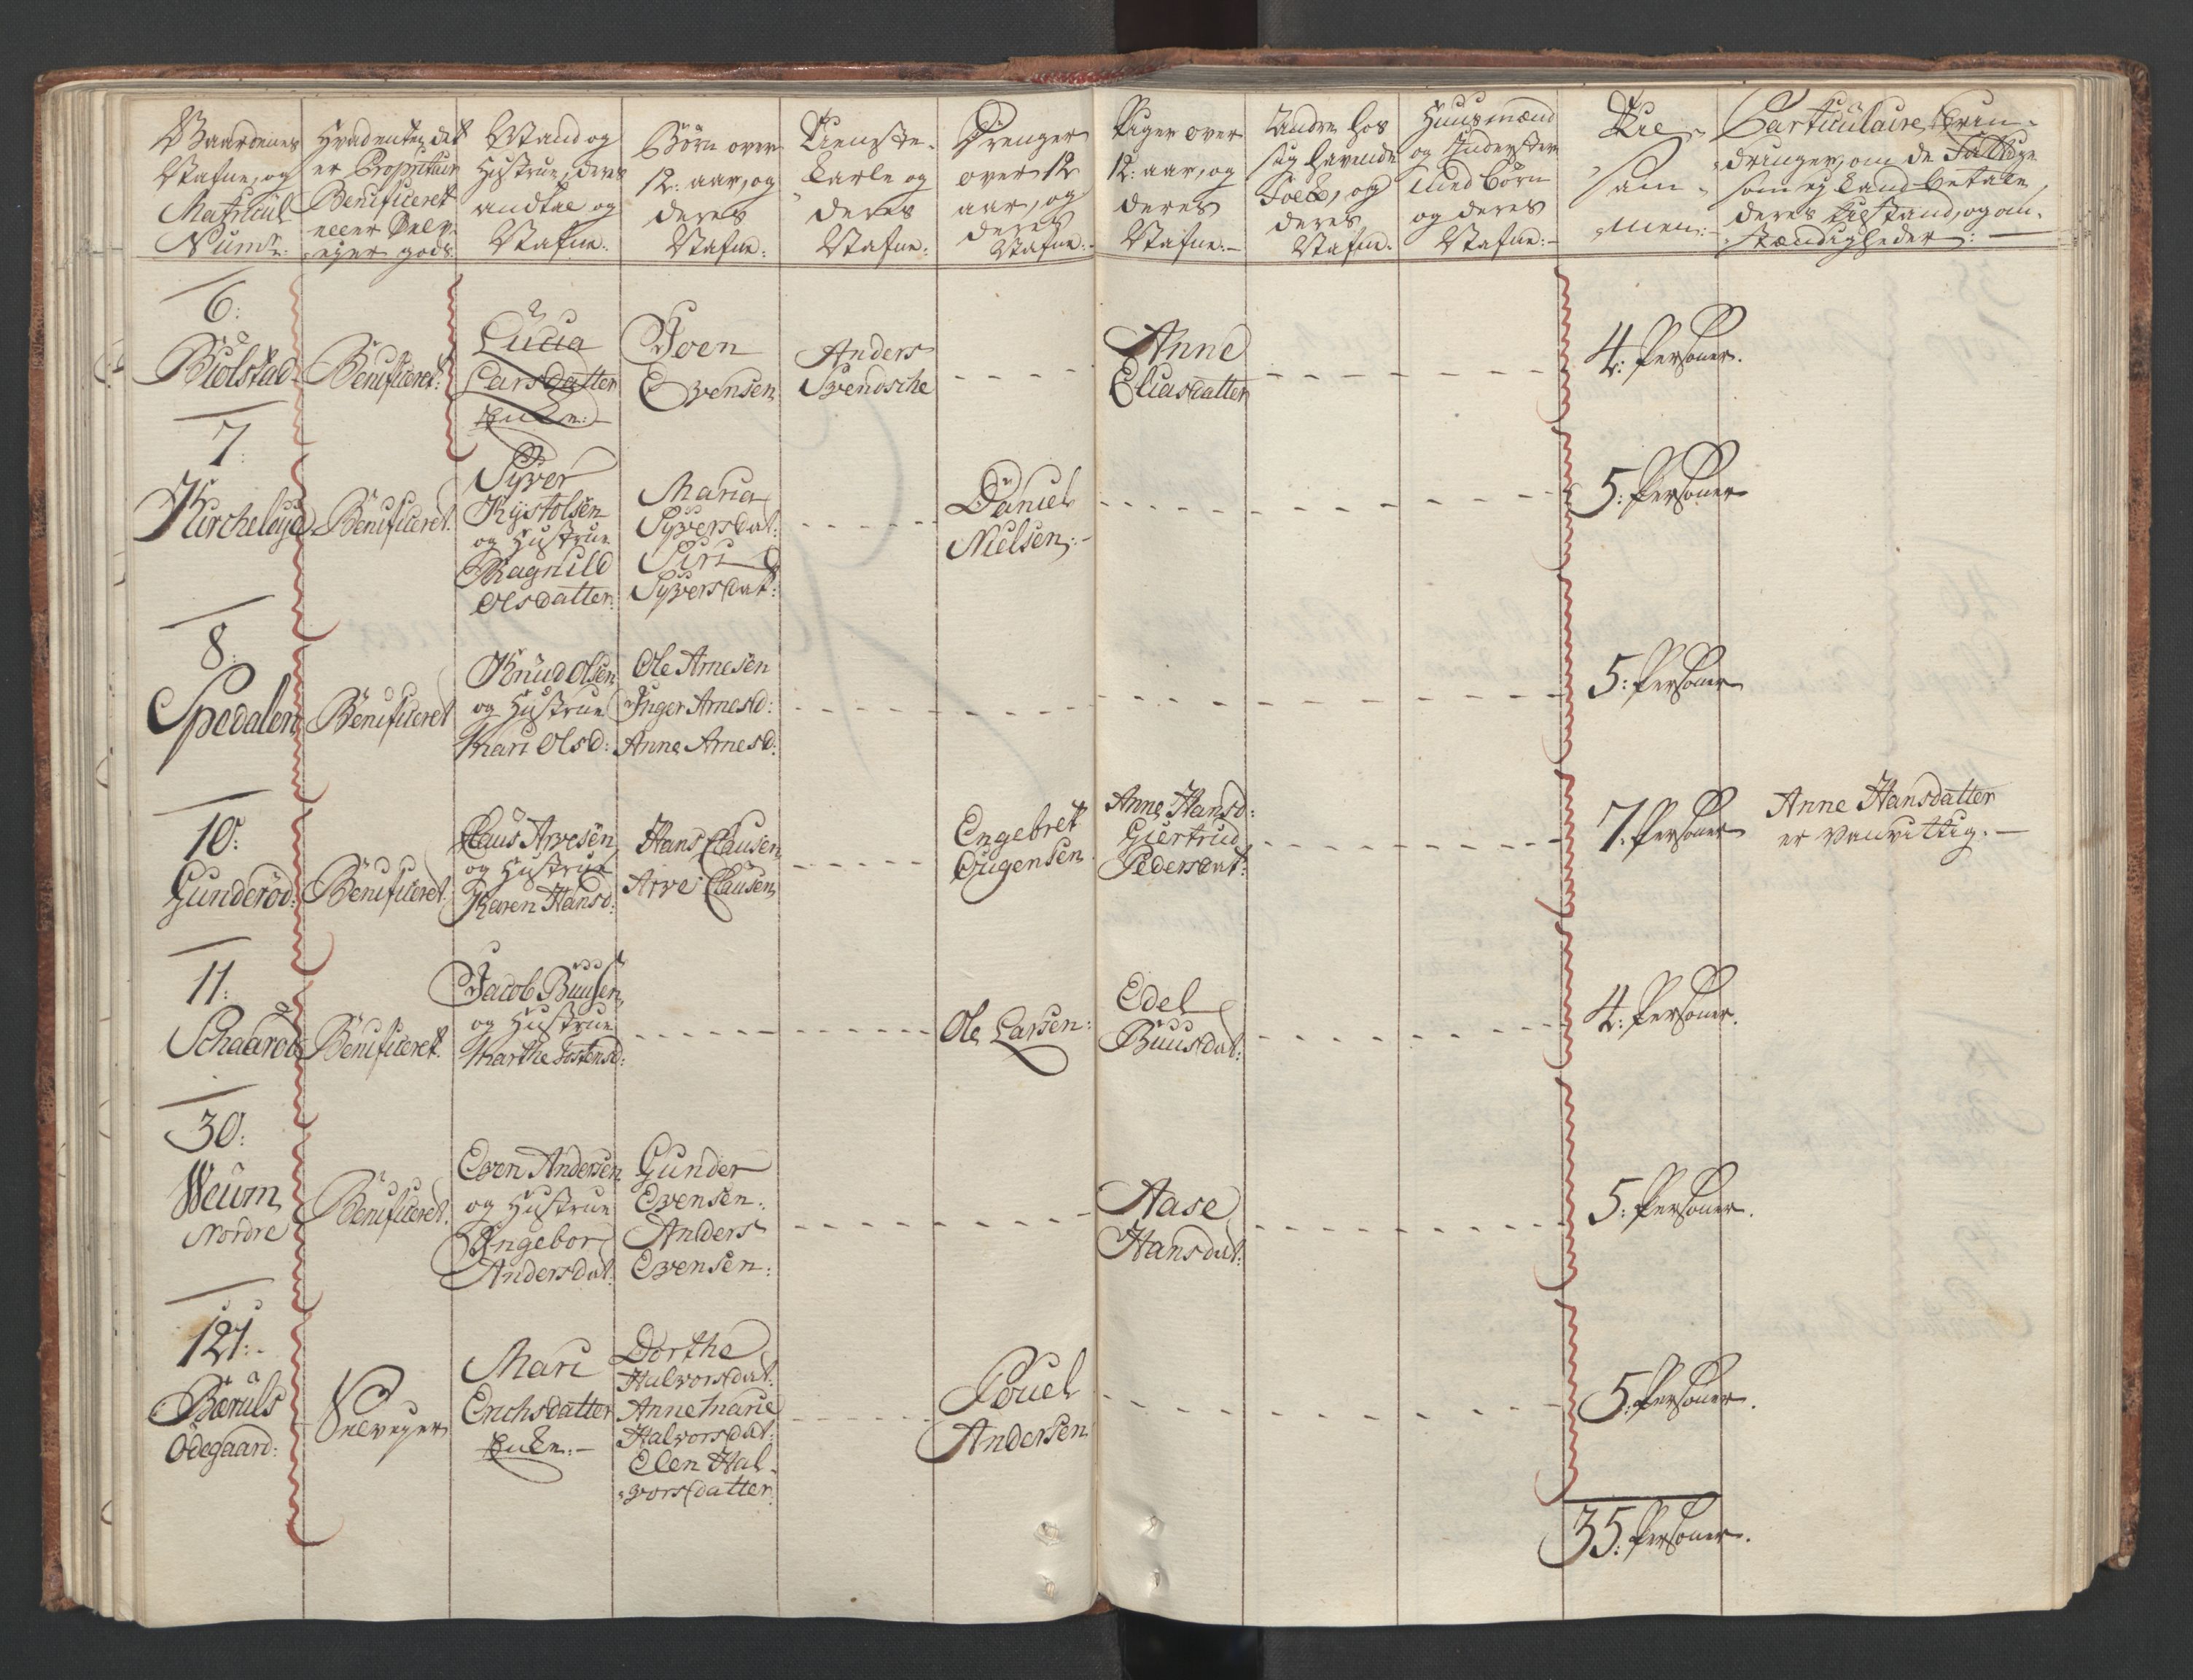 Gaardenes
Nafne, og
Matricul
Num̄r:
Hvadenten det
er Propritair
Benificeret
eller Selv-
eyer gods.
Mand og
Hustrue, deres
andtal og
Nafne.
Børn over
12: aar, og
deres
Nafne:
Tieneste-
Karle og
deres
Nafne:
Drenger
over 12
aar, og
deres
Nafne:
Piger over
12: aar, og
deres
Nafne:-
Andre hos
sig havende
Folck, og
deres
Nafne.
Huusmænd
og Inderster
med Børn
og deres
Nafne:-
Til-
sam-
men:-
Particulaire Erin-
dringer, om de Fattige
som ej kand betale,
deres Tilstand, og om-
stændigheder:-
6:
Biølstad
Benificeret:
Lucia
Larsdatter
Enke:-
Joen
Evensen
Anders
Svendsche
Anne
Eliasdatter
4: Personer.
7:
Kircheløye
Benificeret.
Syver
Kystolsen
og Hustrue
Ragnild
Olsdatter:
Maria
Syversdat:
Siri
Syversdat:
Daniel
Nielsen:-
5: Personer
8:
Spedalen
Benificeret
Knud Olsen
og Hustrue
Mari Olsd:
Ole Arnesen
Inger Arnesd:
Anne Arnesd:
5: Personer
10:
Gunderød:
Benificeret.
Claus Arvesen
og Hustrue
Karen Hansd:
Hans Clausen
Arve Clausen
Engebret
Eugensen
Anne Hansd:
Giertrud
Pedersdat:
7: Personer
Anne Hansdatter
er vanvittig.-
11:
Schaarød
Benificeret.
Jacob Buusen
og Hustrue
Marthe Tostensd:
Ole Larsen:
Edel
Buusdat:
4: Personer.
30:
Weum
Nordre
Benificeret.
Even Andersen
og Hustrue
Engebor
Andersdat:
Gunder
Evensen:
Anders
Evensen:
Aase
Hansdat:
5: Personer.
121:-
Bæruls
Ödegaard:
Selveyer
Mari
Erichsdatter
Enke:-
Dorthe
Halvorsdat:
Anne Marie
Halvorsdat:
Elen Hal-
vorsdatter:
Pouel
Andersen
5: Personer.
35: Personer.